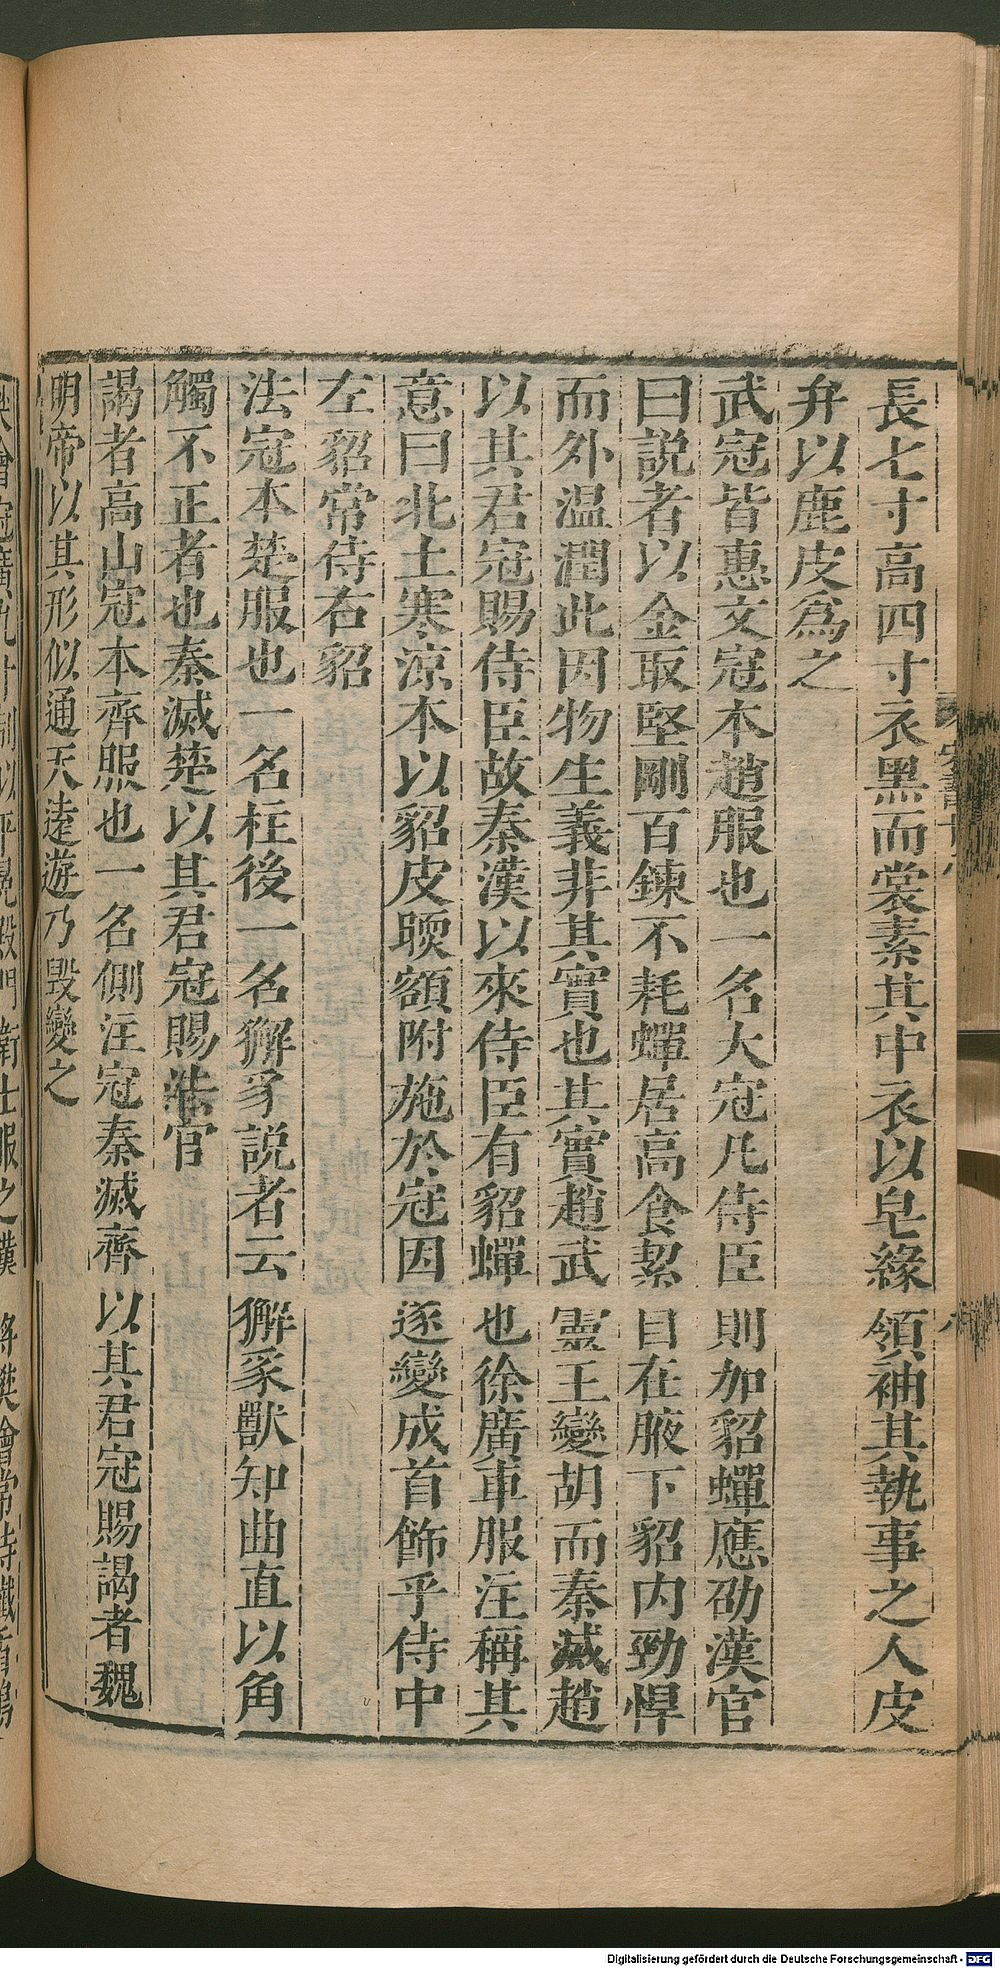 長七寸高四寸衣黑而裳素其中衣以皂緣領袖其執事之人皮
弁以鹿皮爲之
武冠皆惠文冠本趙服也一名大冠凡侍臣則加貂蟬應劭漢官
曰説者以金取堅剛百鍊不耗蟬居高食絜目在腋下貂内勁悍
而外温潤此因物生義非其實也其實趙武靈王變胡而秦滅趙
以其君冠賜侍臣故秦漢以來侍臣有貂蟬也徐廣車服注稱其
意曰北土寒凉本以貂皮䁔額附施於冠因遂變成首飾乎侍中
左貂常侍右貂
法冠本楚服也一名柱後一名獬豸説者云獬豸獸知曲直以角
觸不正者也秦滅楚以其君冠賜法官
謁者高山冠本齊服也一名側注冠秦滅齊以其君冠賜謁者魏
明帝以其形似通天遠遊乃毁變之
Digitalisierung gefördert durch die Deutsche Forschungsgemeinschaft - DFG